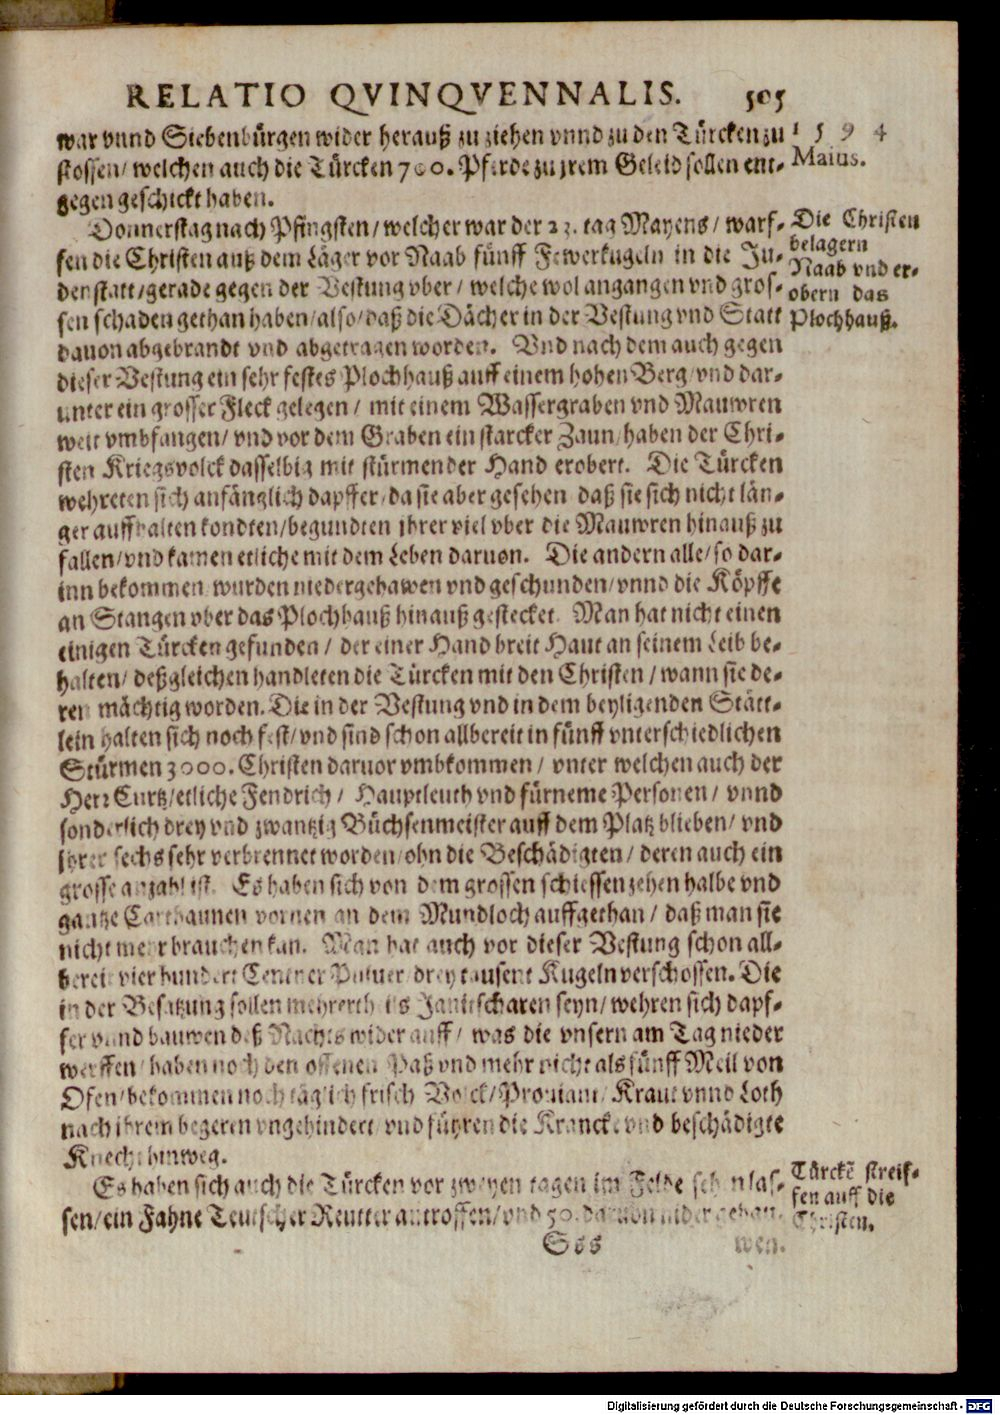 RELATIO QVINQVENNALIS. 505
war vnnd Siebenbürgen wider herauß zu ziehen vnnd zu den Türcken zu
stossen/ welchen auch die Türcken 700. Pferde zu jrem Geleid sollen ent-
gegen geschickt haben.
1594
Maius.
Donnerstag nach Pfingsten/ welcher war der 23. tag Mayens/ warf-
fen die Christen auß dem Läger vor Naab fünff Fewerkugeln in die Ju-
denstatt/ gerade gegen der Vestung vber/ welche wol angangen vnd gros-
sen schaden gethan haben/ also/ daß die Dächer in der Vestung vnd Statt
dauon abgebrandt vnd abgetragen worden. Vnd nach dem auch gegen
dieser Vestung ein sehr festes Plochhauß auff einem hohen Berg/ vnd dar-
unter ein grosser Fleck gelegen/ mit einem Wassergraben vnd Mauwren
weit vmbfangen/ vnd vor dem Graben ein starcker Zaun/ haben der Chri-
sten Kriegsvolck dasselbig mit stürmender Hand erobert. Die Türcken
wehreten sich anfänglich dapffer/ da sie aber gesehen daß sie sich nicht län-
ger auffhalten kondten/ begundten jhrer viel vber die Mauwren hinauß zu
fallen/ vnd kamen etliche mit dem Leben daruon. Die andern alle/ so dar-
inn bekommen wurden niedergehawen vnd geschunden/ vnnd die Köpffe
an Stangen vber das Plochhauß hinauß gestecket. Man hat nicht einen
einigen Türcken gefunden/ der einer Hand breit Haut an seinem Leib be-
halten/ deßgleichen handleten die Türcken mit den Christen/ wann sie de-
ren mächtig worden. Die in der Vestung vnd in dem beyligenden Stätt-
lein halten sich noch fest/ vnd sind schon allbereit in fünff vnterschiedlichen
Stürmen 3000. Christen daruor vmbkommen/ vnter welchen auch der
Herr Curtz/ etliche Fendrich/ Hauptleuth vnd fürneme Personen/ vnnd
sonderlich drey vnd zwantzig Büchsenmeister auff dem Platz blieben/ vnd
jhrer sechs sehr verbrennet worden/ ohn die Beschädigten/ deren auch ein
grosse anzahl ist. Es haben sich von dem grossen schiessen zehen halbe vnd
gantze Carthaunen vornen an dem Mundloch auffgethan/ daß man sie
nicht mehr brauchen kan. Man hat auch vor dieser Vestung schon all-
bereit vier hundert Centner Puluer/ drey tausent Kugeln verschossen. Die
in der Besatzung sollen mehrertheils Janitscharen seyn/ wehren sich dapf-
fer vnnd bauwen deß Nachts wider auff/ was die vnsern am Tag nieder
werffen/ haben noch den offenen Paß vnd mehr nicht als fünff Meil von
Ofen/ bekommen noch täglich frisch Volck/ Prouiant/ Kraut vnnd Loth
nach ihrem begeren vngehindert/ vnd führen die Krancke vnd beschädigte
Knecht hinweg.
Die Christen
belagern
Naab vnd er-
obern das
Plochhauß.
Es haben sich auch die Türcken vor zweyen tagen im Felde sehen las-
sen/ ein Fahne Teutscher Reutter antroffen/ vnd 50. daruon nider gehau-
Türckẽ streif-
fen auff die
Christen.
Sss wen.
Digitalisierung gefördert durch die Deutsche Forschungsgemeinschaft - DFG